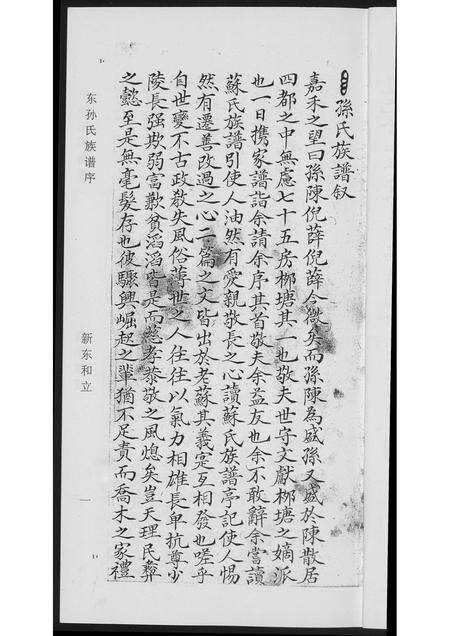 孫氏族譜叙
嘉禾之望曰孫陳倪薛倪薛今微矣而孫陳為盛孫又盛於陳散居
四都之中無慮七十五房栁塘其一也敬夫世守文獻栁塘之嫡派
也一日携家譜詣余請余序其首敬夫余益友也余不敢辭余嘗讀
蘇氏族譜引使人油然有愛親敬長之心讀蘇氏族譜亭記使人惕
然有遷善改過之心二篇之文皆出於老蘇其義寔互相發也嗟乎
自世變不古政教失風俗薄世之人往往以氣力相雄長卑抗尊少
陵長强欺弱富歉貧滔滔皆是而慈孝恭敬之風熄矣豈天理民彝
之懿至是無毫髮存也彼驟興崛起之輩猶不足責而喬木之家禮
东孙氏族谱序
新东和立
一